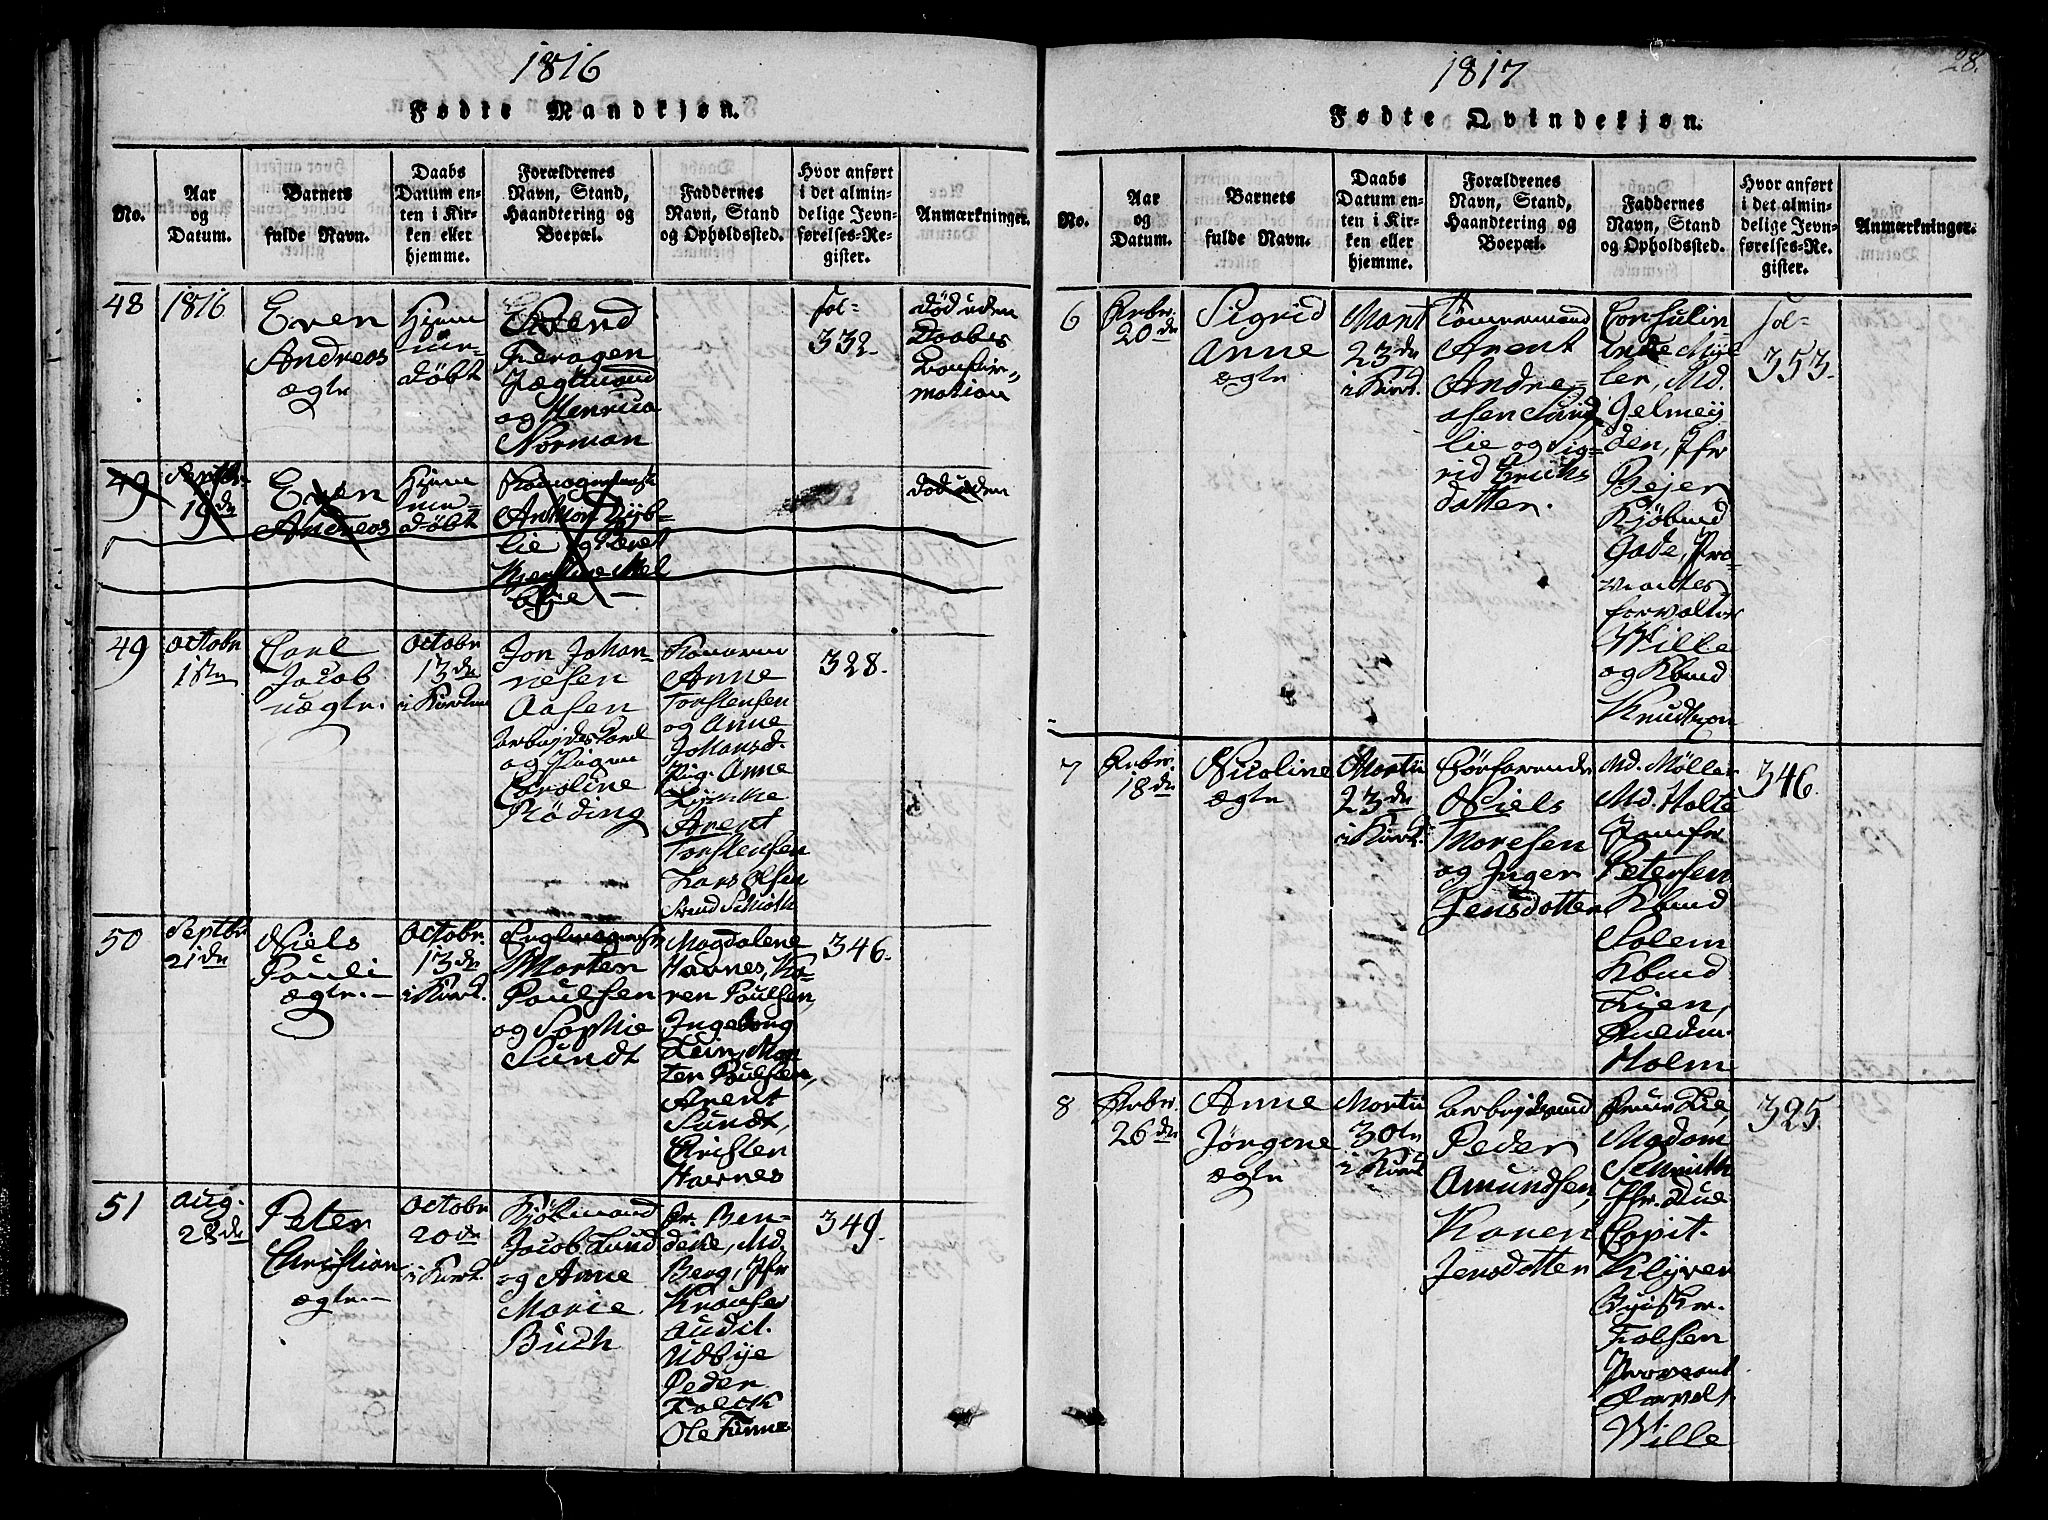 1816
Fødte Mandkjøn.
No.
Aar
og
Datum.
Barnets
fulde Navn.
Daabs
Datum en-
ten i Kir-
ken eller
hjemme.
Forældrenes
Navn, Stand,
Haandtering og
Boepæl.
Faddernes
Navn, Stand
og Opholdssted.
Hvor anført
i det almin-
delige Jevn-
førelses-Re-
gister.
Anmærkninger.
48
1816
Even
Andreas
ægte
Hjem
me-
døbt
Svend
Feragen
Jægtmand
og Henrica
Norman
fol-
332.
død uden
Daabes
Confir-
mation
49
Septbr
18de
Even
Andreas
Hjem
me-
døbt
lie og Beret
død uden
49
Octobr
1ste
Carl
Jacob
uægte.
Octobr
13de
i Kirken
Jon Johan-
nesen
Aasen
arbejds Karl
og Pigen
Caroline
Röding
Konerne
Anne
Torstensen
og Anne
Johansd.
Pig. Anne
Lymke
Arent
Torstensen
Lars Olsen
Svend Schioth
328.
50
Septbr
21de
Niels
Pauli
ægte.-
Octobr.
13de
i Kirk.
Morten
Poulsen
og Sophie
Sundt
Magdalene
Havnes, Ka-
ren Poulsen,
Ingeborg
Lein, Mor
ten Poulsen,
Arent
Sundt,
Christen
Havnes
346.
51
Aug.
28de
Peter
Christian
ægte.-
Octobr
20de
i Kirk.
Kjøbmand
Jacob Lund
og Anne
Marie
Buch
Fr. Ben-
deke, Md.
Berg, Jfr
Kramer
Audit.
Udbye
Peder
Falck
Ole Finne
349.
1817
28.
Fødte Qvindekjøn.
No.
Aar
og
Datum.
Barnets
fulde Navn.
Daabs
Datum en-
ten i Kir-
ken eller
hjemme.
Forældrenes
Navn, Stand,
Haandtering og
Boepæl.
Faddernes
Navn, Stand
og Opholdssted.
Hvor anført
i det almin-
delige Jevn-
førelses-Re-
gister.
Anmærkninger.
6
Febr.
20de
Sigrid
Anne
ægte
Mart
23de
i Kirk.
Tømmermand
Arent
Andre-
asen Sund
lie og Sig-
rid Erichs
datter.
Consulin
de Møl
ler, Md.
Gelmey
den, Jfr
Bejer
Kjöbmd
Gade, Pro
viantes
forvalter
Wille
og Kbmd
Knudtzon
fol-
353.
7
Febr.
18de
Nicoline
ægte
Martii
23de
i Kirk.
Søefarende
Niels
Moresen
og Inger
Jensdatter
Md. Møller
Md. Holte
Jomfr
Petersen
Kbmd
Solem
Kbmd
Lien,
Holm
346.
8
Febr.
26de
Anne
Jörgine
ægte
Martii
30te
i Kirk
Arbejdsmd
Peder
Amundsen,
Karen
Jensdatter
Frue Lie,
Madam
Schmith
Jfr. Due
Capit.
Klüver
Folsen
Proviant
Forvalt
Wille
325.